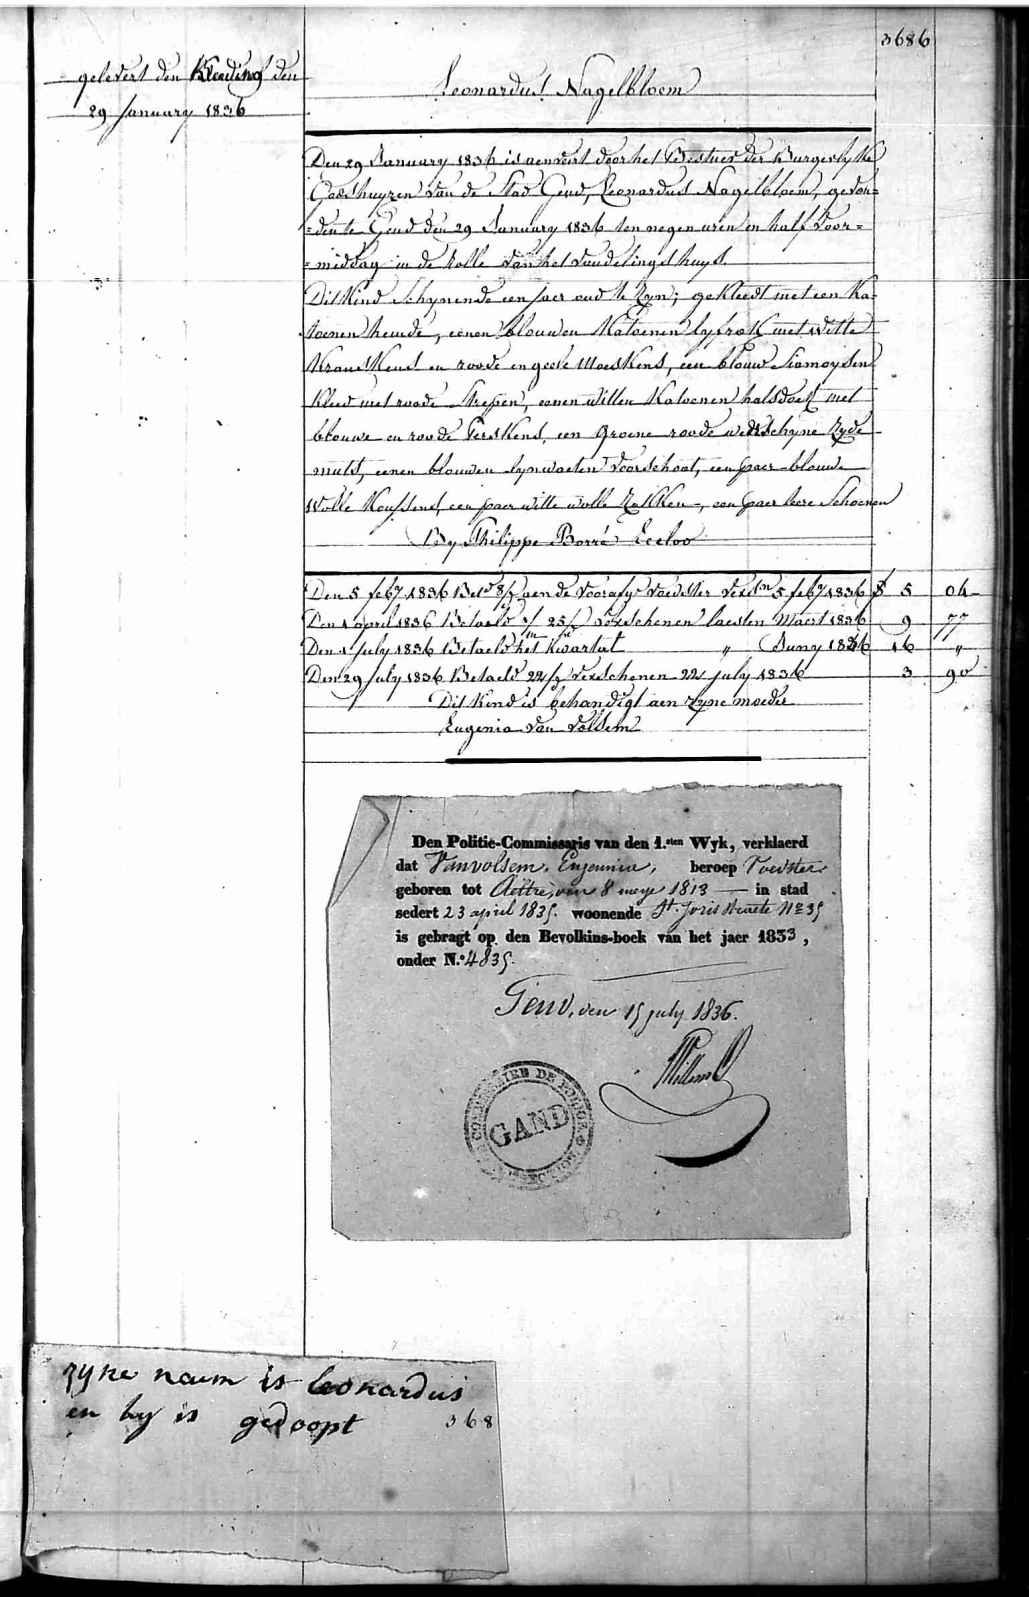 3686
gelevert den Kleeding den
29 January 1836
Leonardus Nagelbloem
Den 29 January 1836 is aenveirt door het Bestuer der Burgerlyke
Godshuyzen van de Stad Gend, Leonardus Nagelbloem, gevon=
=den te Gend den 29 January 1836 ten negen uren en half voor=
=middag in de rolle van het vondelingshuys.
Dit Kind schynende een jaer oud te zyn; gekleedt met een Ka=
toenen hemde, eenen blouwen Katoenen lyfrok met witte
Kranskens en roode en geele Moeskens, een blouw Siamoysen
Kleed met roode strepen, eenen witten Katoenen halsdoek met
blouwe en roode Perskens, een groene roode wederschyne Zyde
muts, eenen blouwen lynwaeten voorschoot, een paer blouwe
wolle Koussens, een paer witte wolle Zokken, een paer leere Schoenen
By Philippe Borré Eecloo
Den 5 feby 1836 Bet. 8/ aen de voorafg. voedster versn 5 feby 1836 F 5 04
Den 1 april 1836 Betaeld 25/ verschenen laesten Maert 1836 9 77
Den 1 July 1836 Betaeld het Kwartael " Juny 1836 16 "
Den 29 July 1836 Betaeld 22/ verschenen 22 july 1836 3 90
Dit Kind is behandigt aen zyne moeder
Eugenia van Volsem
Den Politie-Commissaris van den 1.sten Wyk, verklaerd
dat Vanvolsem, Eugennia, beroep Voedster
geboren tot Aeltre, den 8 meye 1813 — in stad
sedert 23 april 1835. woonende St. Joris straete No 35
is gebragt op den Bevolkins-boek van het jaer 1833,
onder N.o 4835.
Gend, den 15 july 1836.
Willems
COMMISSAIRE DE POLICE
GAND
SECTION
zyne naem is leonardus
en hy is gedoopt 368